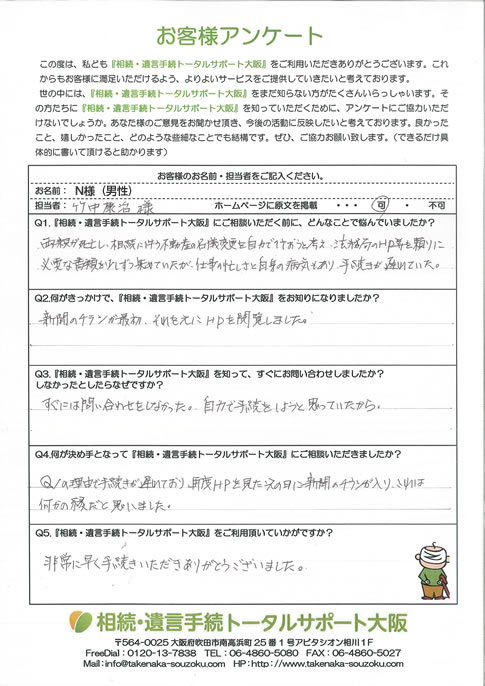 お客様アンケート
この度は、私ども『相続・遺言手続トータルサポート大阪』をご利用いただきありがとうございます。これ
からもお客様に満足いただけるよう、よりよいサービスをご提供していきたいと考えております。
世の中には、『相続・遺言手続トータルサポート大阪』をまだ知らない方がたくさんいらっしゃいます。そ
の方たちに『相続・遺言手続トータルサポート大阪』を知っていただくために、アンケートにご協力いただ
けないでしょうか。あなた様のご意見をお聞かせ頂き、今後の活動に反映したいと考えております。良かった
こと、嬉しかったこと、どのような些細なことでも結構です。ぜひ、ご協力お願い致します。（できるだけ具
体的に書いて頂けると助かります）
お客様のお名前・担当者をご記入ください。
お名前： N様（男性）
担当者：竹中康治様 ホームページに原文を掲載 ・・・ 可 ・ 不可
Q1.『相続・遺言手続トータルサポート大阪』にご相談いただく前に、どんなことで悩んでいましたか？
両親が死亡し、相続に伴う不動産の名義変更を自力で行おうと考え、法務局のHP等を頼りに
必要な書類を少しずつ集めていたが、仕事の忙しさと自身の病気もあり、手続きが遅れていた。
Q2.何がきっかけで、『相続・遺言手続トータルサポート大阪』をお知りになりましたか？
新聞のチラシが最初、それを元にHPを閲覧しました。
Q3.『相続・遺言手続トータルサポート大阪』を知って、すぐにお問い合わせしましたか？
しなかったとしたらなぜですか？
すぐには問い合わせをしなかった。自力で手続をしようと思っていたから。
Q4.何が決め手となって『相続・遺言手続トータルサポート大阪』にご相談いただきましたか？
Q1の理由で手続きが遅れており、再度HPを見た次の日に新聞のチラシが入り、これは
何かの縁だと思いました。
Q5.『相続・遺言手続トータルサポート大阪』をご利用頂いていかがですか？
非常に早く手続きいただきありがとうございました。
相続・遺言手続トータルサポート大阪
〒564-0025 大阪府吹田市南高浜町25番1号アピタシオン相川1F
FreeDial：0120-13-7838 TEL：06-4860-5080 FAX：06-4860-5027
Mail：info@takenaka-souzoku.com HP：http://www.takenaka-souzoku.com